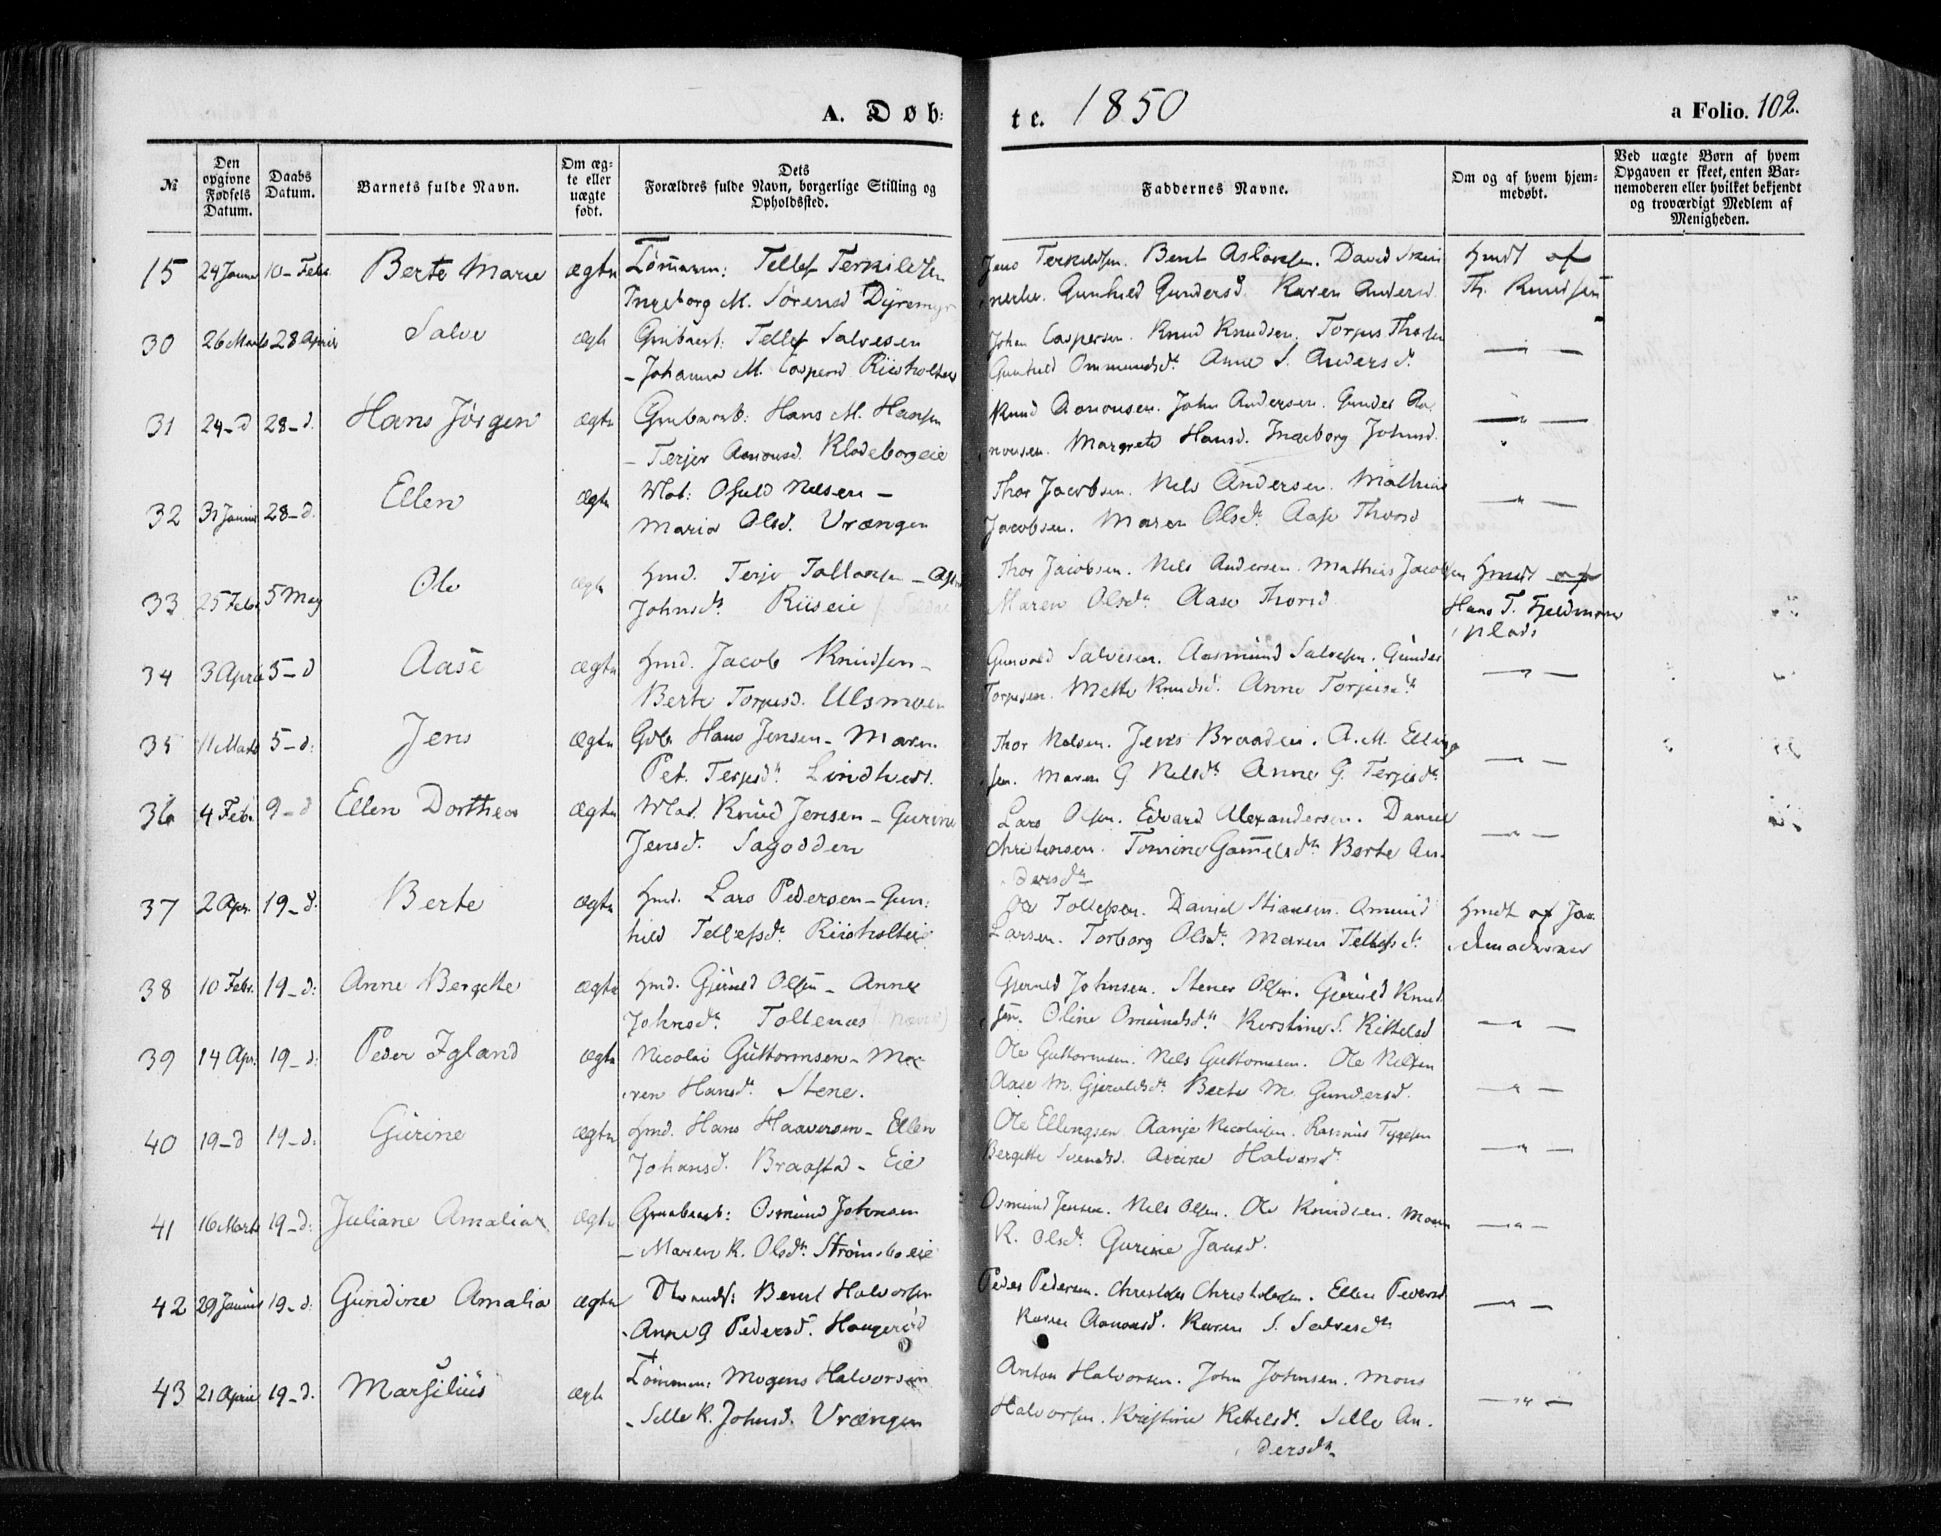 A. Døb:
te. 1850
a Folio. 102.
№
Den opgivne Fødsels Datum.
Daabs Datum.
Barnets fulde Navn.
Om ægte eller uægte født.
Dets Forældres fulde Navn, borgerlige Stilling og Opholdssted.
Faddernes Navne.
Om og af hvem hjemmedøbt.
Ved uægte Børn af hvem Opgaven er skeet, enten Barnemoderen eller hvilket bekjendt og troværdigt Medlem af Menigheden.
15 10 - Febr. Berte Marie ægte Tømmerm: Tellef
Ingeborg M. Sørensd Dyremyr
Bent Aslaksen. David
Gunhild Gundersd. Karen Andersd.
Hmdt af
Th. Knudsen
30 26 Marts 28 April Salve ægte Tellef Salvesen
- Johanne M. Caspersd Riisholtei
Johan Caspersen. Knud Knudsen. Torjus
Gunhild Ommundsd. Anne S. Andersd.
31 24 - d 28 - d. Hans Jörgen ægte Hans M. Hansen
- Terjer Aanonsd. Klodeborgeie
Knud Aanonsen. John Andersen. Gunder Aanonsen.
Margrete Hansd. Ingeborg Johnsd.
32 31 Januar 28 - d. Ellen ægte Mat: Osuld Nilsen -
Maria Olsd. Vrængen
Thor Jacobsen. Nils Andersen. Mathias
Jacobsen. Maren Olsdt. Aase Thorsd
33 25 Febr 5 May Ole ægte Hmd. Terje Tallaksen -
Johnsdt. Riiseie
Thor Jacobsen. Nils Andersen. Mathias Jacobsen
Maren Olsdt. Aase Thorsd
Hmdt af
Hans T. Fjeldmoms
plads
34 3 April 5 - d Aase ægte Hmd. Jacob Knudsen -
Berte Torjusd. Ulsmoen
Gunvald Salvesen. Aasmund Salvesen. Gunder
Torjusen. Mette Knudsd. Anne Torjusdt
35 11 Marts 5 - d: Jens ægte Gdb. Hans Jensen - Maren
Pet. Terjesdt. Lindtvedt.
Thor Nielsen. Jens Braaden. A. M. Ellingsen.
Maren G Nilsdt. Anne G. Terjesdt
36 4 Feb. 9 - d Ellen Dorthea ægte Mat. Knud Jensen - Gurine
Jensdt. Sagodden
Lars Olsen. Edvard Alexandersen. Daniel
Christensen. Tomine Gamelsdt. Berte Andersdt
37 2 Apr. 19 - d: Berte ægte Hmd. Lars Pedersen - Gunhild
Tellefsdt. Riisholtei
Ole Tollefsen. David Stiansen. Amund
Larsen. Torborg Olsdt. Maren Tellefsdt.
Hmdt af Jordemoderen
38 10 Febr. 19 - d: Anne Bergette ægte Hmd. Gjeruld Olsen - Anne
Johnsdt. Toltenæs
Gjeruld Johnsen. Stener Olsen. Gjeruld Knudsen.
Oline Omundsdt. Kirstine S. Kittelsd
39 14 Apr. 19 - d: Peder Igland ægte Nicolai Guttormsen - Maren
Hansdt. Stene.
Ole Guttormsen. Nils Guttormsen. Ole Nilsen
Aase M. Gjeruldsdt. Berte M. Gundersd.
40 19 - d 19 - d: Gurine ægte Hmd. Hans Haaversen - Ellen
Johansd. Braastad - Eie
Ole Ellingsen. Aanje Nicolaisen. Rasmus Tygesen
Bergette Svendsd. Halvorsdt
41 16 Marts 19 - d: Juliane Amalia ægte Osmund Johnsen
- Maren K. Olsdt. Strømsboeie
Osmund Jensen. Nils Olsen. Ole Knudsen. Maren
K. Olsdt. Gurine Jansd.
42 29 Januar 19 - d: Gundine Amalia ægte Bernt Halvorsen
- Anne G Pedersd. Haugerød
Peder Pedersen. Ellen Pedersd.
Karen Aanonsd. Karen S. Salvesdt
43 21 April 19 - d. Marsilius ægte Tömmerm: Mogens Halvorsen
- Sille K. Johnsd. Vrængen
Anton Halvorsen. John Johnsen. Mons
Halvorsen. Kristine Kittelsdt. Sille Andersdt